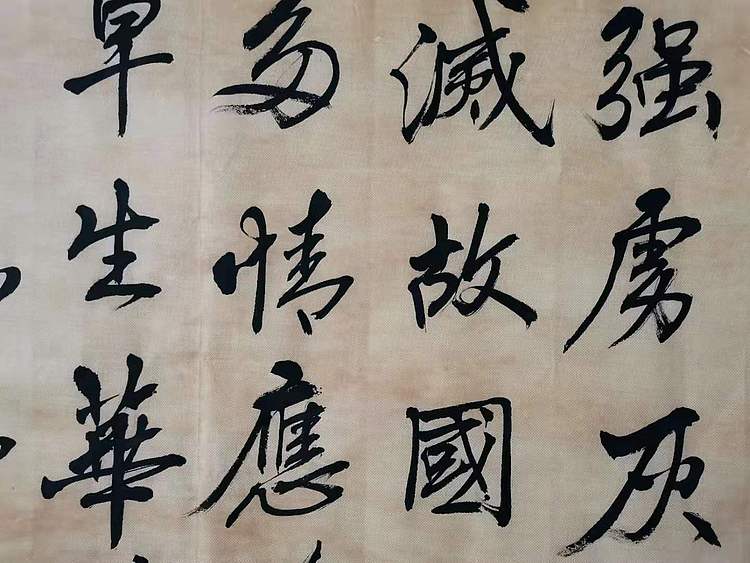 强虏灰
滅故國
多情應
早生華